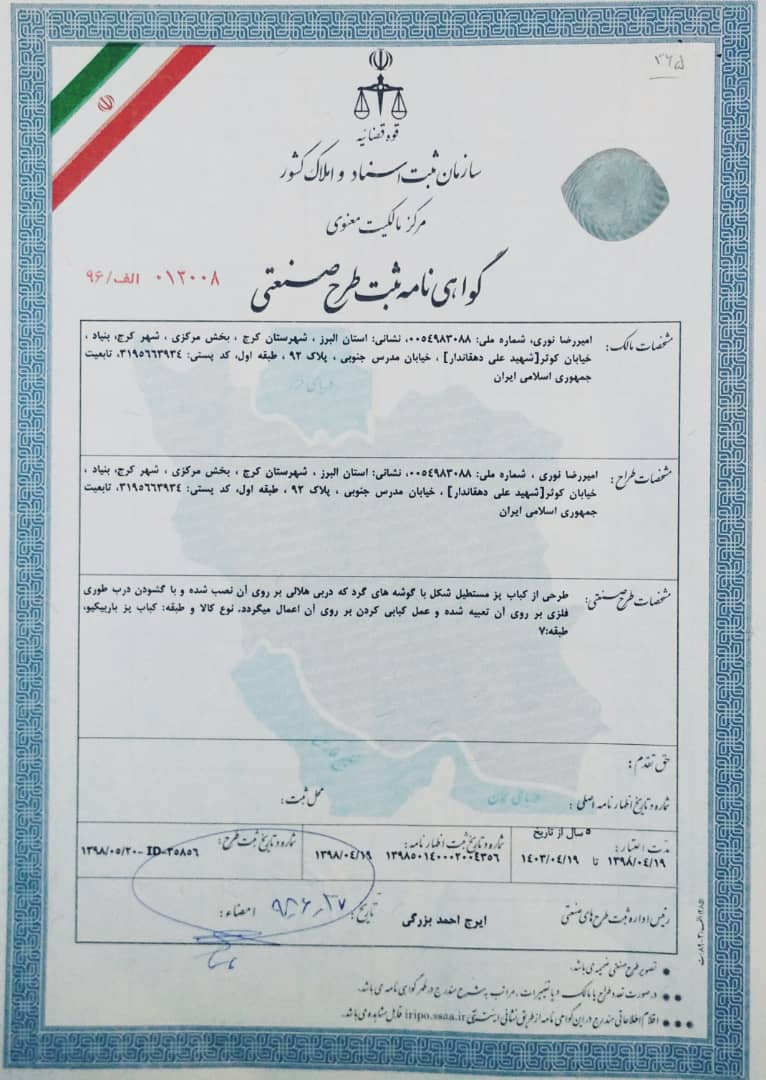 ۳۶۵
قوه قضائیه
سازمان ثبت اسناد و املاک کشور
مرکز مالکیت معنوی
گواهی نامه ثبت طرح صنعتی
۰۱۳۰۰۸ الف/۹۶
مشخصات مالک: امیررضا نوری، شماره ملی: ۰۰۵۴۹۸۳۰۸۸، نشانی: استان البرز ، شهرستان کرج ، بخش مرکزی ، شهر کرج، بنیاد ،
خیابان کوثر[شهید علی دهقاندار] ، خیابان مدرس جنوبی ، پلاک ۹۲ ، طبقه اول، کد پستی: ۳۱۹۵۶۶۳۹۳۴، تابعیت
جمهوری اسلامی ایران
مشخصات طراح: امیررضا نوری ، شماره ملی: ۰۰۵۴۹۸۳۰۸۸، نشانی: استان البرز ، شهرستان کرج ، بخش مرکزی ، شهر کرج، بنیاد ،
خیابان کوثر[شهید علی دهقاندار] ، خیابان مدرس جنوبی ، پلاک ۹۲ ، طبقه اول، کد پستی: ۳۱۹۵۶۶۳۹۳۴، تابعیت
جمهوری اسلامی ایران
مشخصات طرح صنعتی: طرحی از کباب پز مستطیل شکل با گوشه های گرد که دربی هلالی بر روی آن نصب شده و با گشودن درب طوری
فلزی بر روی آن تعبیه شده و عمل کبابی کردن بر روی آن اعمال میگردد. نوع کالا و طبقه: کباب پز باربیکیو،
طبقه:۷
حق تقدم:
شماره و تاریخ اظهار نامه اصلی: محل ثبت:
مدت اعتبار: ۵ سال از تاریخ
۱۳۹۸/۰۴/۱۹ تا ۱۴۰۳/۰۴/۱۹
شماره و تاریخ ثبت اظهار نامه:
۱۳۹۸۵۰۱۴۰۰۰۲۰۰۴۳۵۶ ۱۳۹۸/۰۴/۱۹
شماره و تاریخ ثبت طرح:
۳۵۸۵۶-ID -۱۳۹۸/۰۵/۲۰
رئیس اداره ثبت طرح های صنعتی ایرج احمد بزرگی تاریخ: امضاء:
تصویر طرح صنعتی ضمیمه می باشد.
در صورت تعدد طراح یا مالک و یا تغییرات، مراتب به شرح مندرج در ظهر گواهی نامه می باشد.
اقلام اطلاعاتی مندرج در این گواهی نامه از طریق نشانی اینترنتی iripo.ssaa.ir قابل مشاهده می باشد.